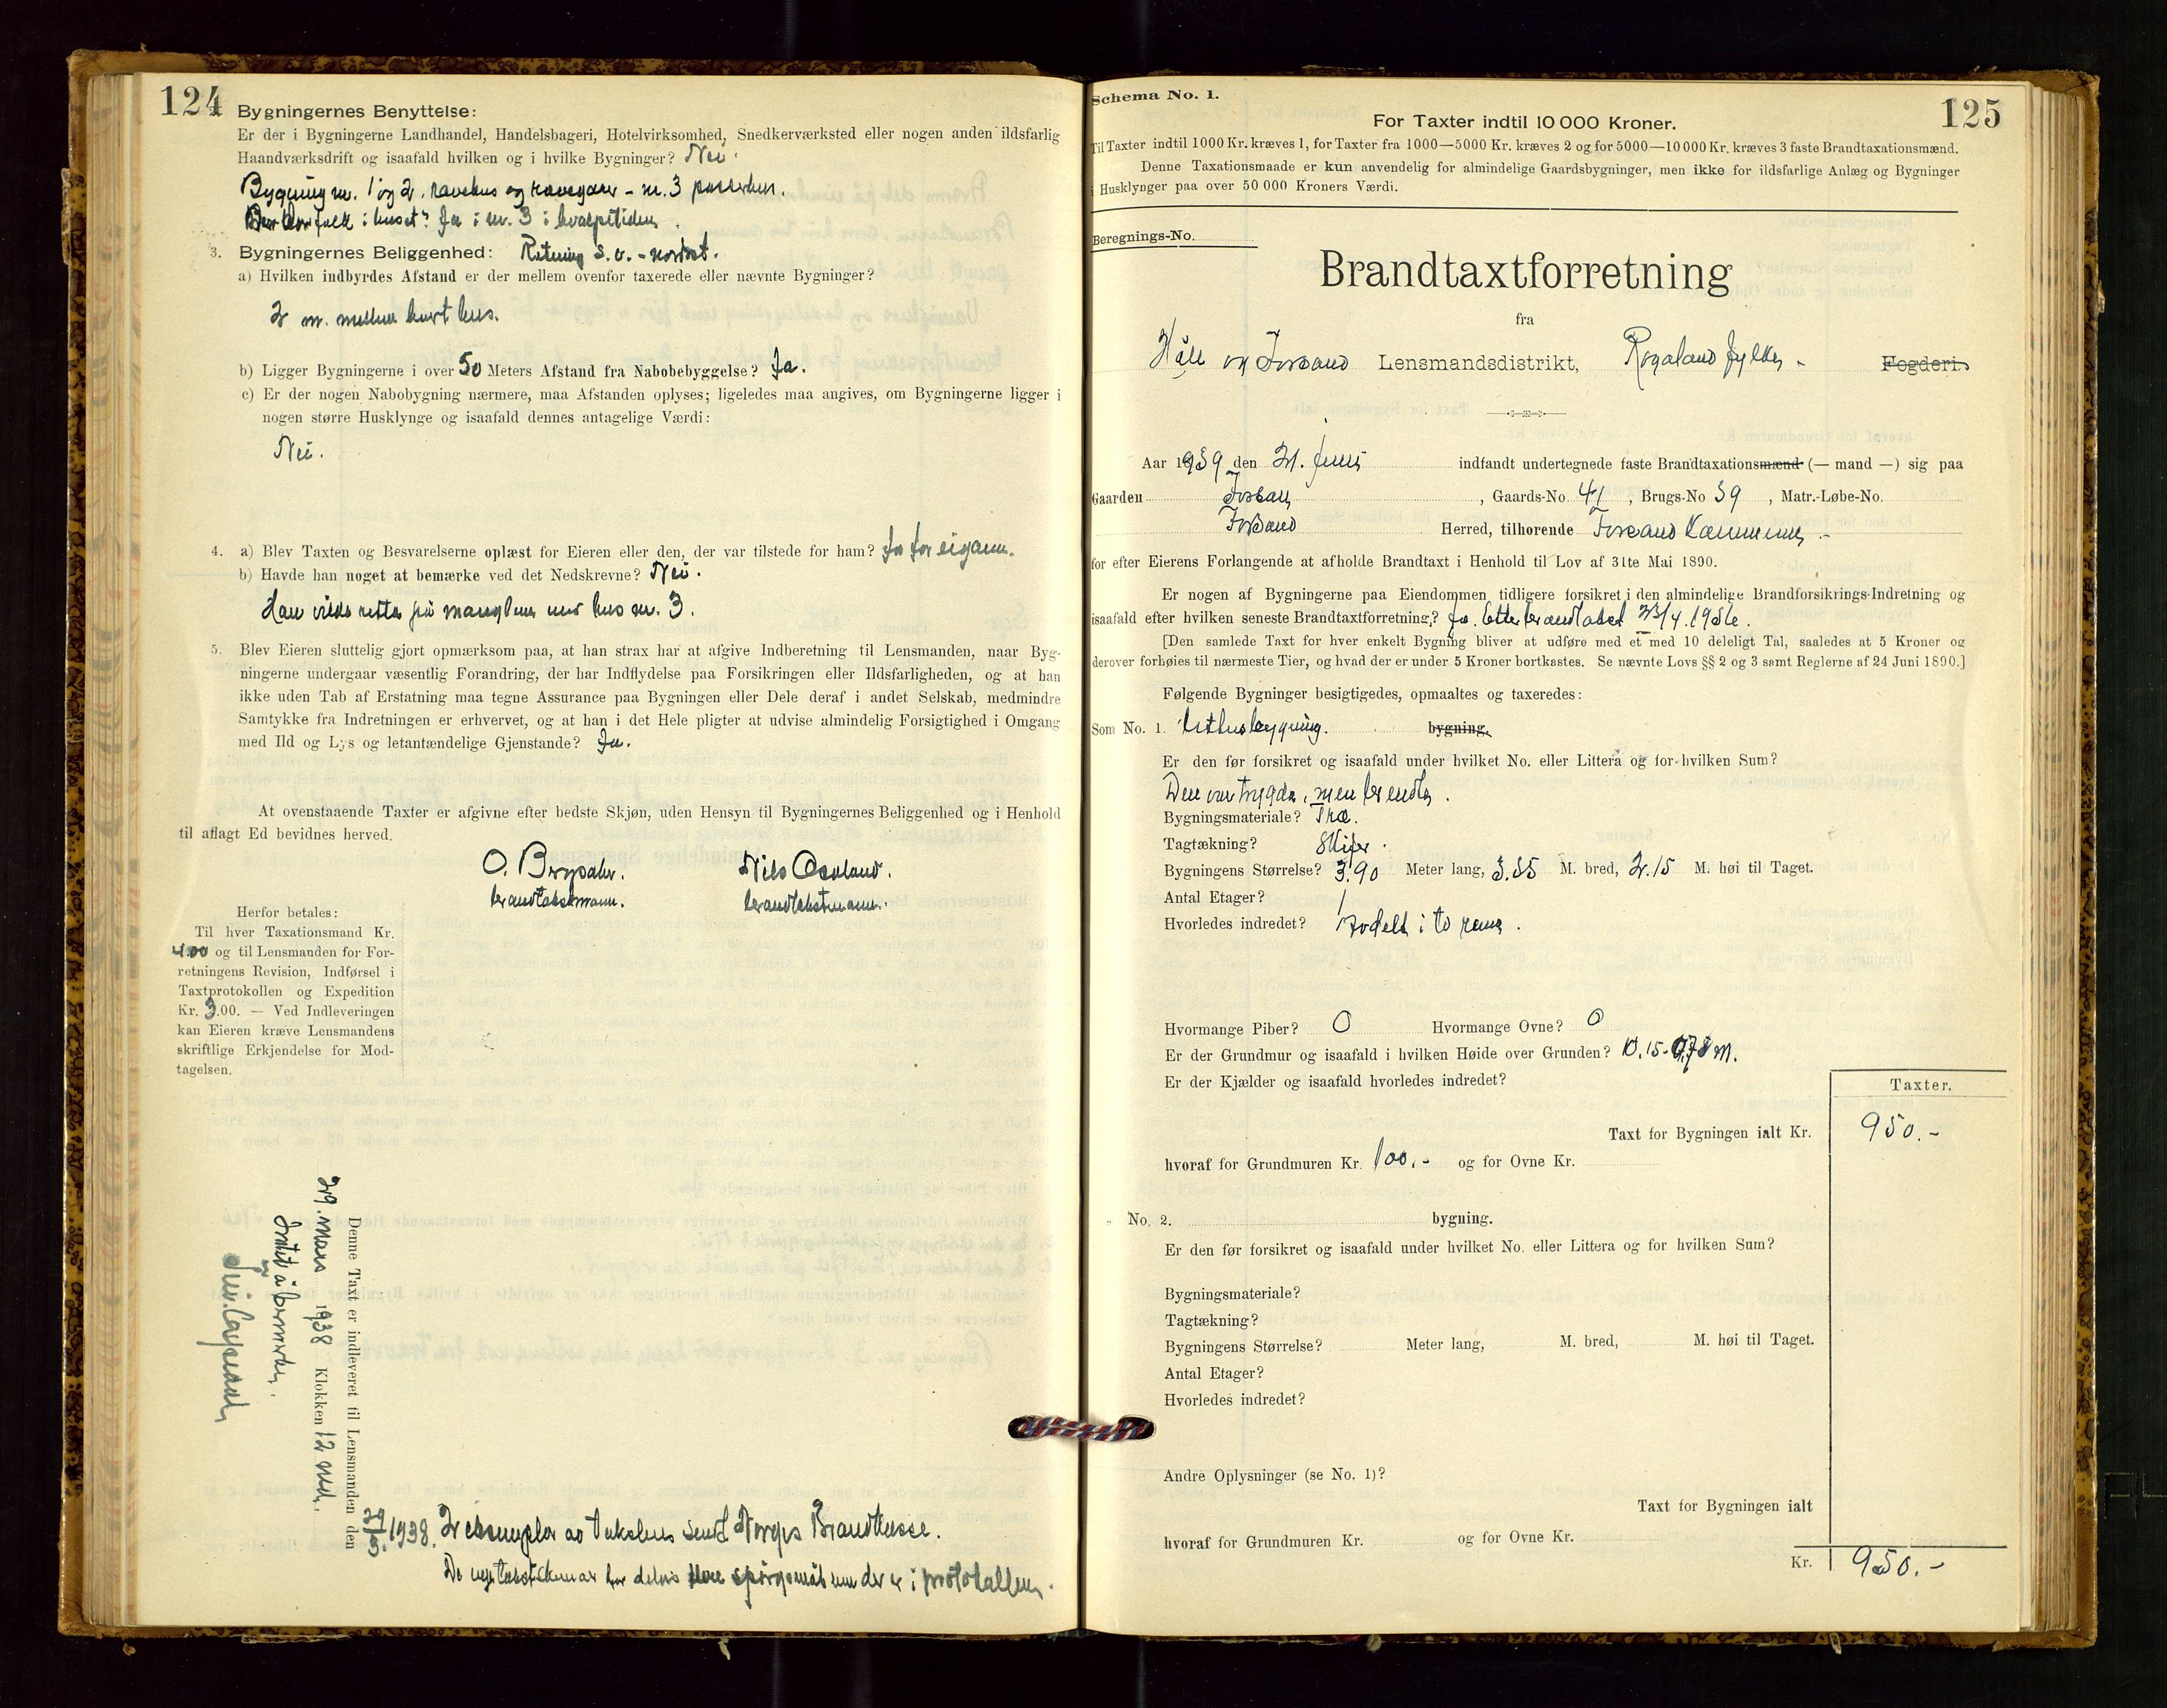 124
Bygningernes Benyttelse:
Er der i Bygningerne Landhandel, Handelsbageri, Hotelvirksomhed, Snedkerværksted eller nogen anden ildsfarlig
Haandværksdrift og isaafald hvilken og i hvilke Bygninger? Nei.
Bygning nr. 1 og 2. revehus og revegard - nr. 3 passerhus.
Bur der folk i huset? Ja i nr. 3 i hvalpetiden.
3. Bygningernes Beliggenhed: Retning s.v. - nordost.
a) Hvilken indbyrdes Afstand er der mellem ovenfor taxerede eller nævnte Bygninger?
2 m. mellem hvert hus.
b) Ligger Bygningerne i over 50 Meters Afstand fra Nabobebyggelse? Ja.
c) Er der nogen Nabobygning nærmere, maa Afstanden oplyses; ligeledes maa angives, om Bygningerne ligger i
nogen større Husklynge og isaafald dennes antagelige Værdi:
Nei.
4. a) Blev Taxten og Besvarelserne oplæst for Eieren eller den, der var tilstede for ham? Ja for eigaren.
b) Havde han noget at bemærke ved det Nedskrevne? Nei.
Han vilde retta på manglene ved hus nr. 3.
5. Blev Eieren sluttelig gjort opmærksom paa, at han strax har at afgive Indberetning til Lensmanden, naar Byg-
ningerne undergaar væsentlig Forandring, der har Indflydelse paa Forsikringen eller Ildsfarligheden, og at han
ikke uden Tab af Erstatning maa tegne Assurance paa Bygningen eller Dele deraf i andet Selskab, medmindre
Samtykke fra Indretningen er erhvervet, og at han i det Hele pligter at udvise almindelig Forsigtighed i Omgang
med Ild og Lys og letantændelige Gjenstande? Ja.
At ovenstaaende Taxter er afgivne efter bedste Skjøn, uden Hensyn til Bygningernes Beliggenhed og i Henhold
til aflagt Ed bevidnes herved.
O. Bergsaker. Nils
brandtakstmann. brandtakstmann.
Herfor betales:
Til hver Taxationsmand Kr.
4.00 og til Lensmanden for For-
retningens Revision, Indførsel i
Taxtprotokollen og Expedition
Kr. 3.00. — Ved Indleveringen
kan Eieren kræve Lensmandens
skriftlige Erkjendelse for Mod-
tagelsen.
Denne Taxt er indleveret til Lensmanden den
29. mars 1938 Klokken 12 md.
Intet å bemerke.
29/3.1938. 2 eksemplar av taksten sendt Norges Brandkasse.
De nye takstskemaer har delvis flere spørgsmål enn der er i protokollen.
125
Schema No. 1.
For Taxter indtil 10 000 Kroner.
Til Taxter indtil 1000 Kr. kræves 1, for Taxter fra 1000—5000 Kr. kræves 2 og for 5000—10 000 Kr. kræves 3 faste Brandtaxationsmænd.
Denne Taxationsmaade er kun anvendelig for almindelige Gaardsbygninger, men ikke for ildsfarlige Anlæg og Bygninger
i Husklynger paa over 50 000 Kroners Værdi.
Beregnings-No.
Brandtaxtforretning
fra
Høle og Forsand Lensmandsdistrikt, Rogaland fylke - Fogderi.
Aar 1939 den 21. juni indfandt undertegnede faste Brandtaxationsmænd (— mand —) sig paa
Gaarden Forsand, Gaards-No. 41, Brugs-No 39, Matr.-Løbe-No.
Forsand Herred, tilhørende Forsand Kommune -
for efter Eierens Forlangende at afholde Brandtaxt i Henhold til Lov af 31te Mai 1890.
Er nogen af Bygningerne paa Eiendommen tidligere forsikret i den almindelige Brandforsikrings-Indretning og
isaafald efter hvilken seneste Brandtaxtforretning? Ja. Etter brandtakst 23/4.
[Den samlede Taxt for hver enkelt Bygning bliver at udføre med et med 10 deleligt Tal, saaledes at 5 Kroner og
derover forhøies til nærmeste Tier, og hvad der er under 5 Kroner bortkastes. Se nævnte Lovs §§ 2 og 3 samt Reglerne af 24 Juni 1890.]
Følgende Bygninger besigtigedes, opmaaltes og taxeredes:
Som No. 1. Uthusbygning. bygning.
Er den før forsikret og isaafald under hvilket No. eller Littera og for hvilken Sum?
Den var trygda, men brendte.
Bygningsmateriale? Tre.
Tagtækning? Skifer.
Bygningens Størrelse? 3.90 Meter lang, 3.35 M. bred, 2.15 M. høi til Taget.
Antal Etager? 1
Hvorledes indredet? Indelt i to rum.
Hvormange Piber? 0 Hvormange Ovne? 0
Er der Grundmur og isaafald i hvilken Høide over Grunden? 0.15-0,78 m.
Er der Kjælder og isaafald hvorledes indredet?
Taxter.
Taxt for Bygningen ialt Kr. 950.-
hvoraf for Grundmuren Kr. 100.- og for Ovne Kr.
„ No. 2. bygning.
Er den før forsikret og isaafald under hvilket No. eller Littera og for hvilken Sum?
Bygningsmateriale?
Tagtækning?
Bygningens Størrelse? Meter lang, M. bred, M. høi til Taget.
Antal Etager?
Hvorledes indredet?
Andre Oplysninger (se No. 1)?
Taxt for Bygningen ialt
hvoraf for Grundmuren Kr. og for Ovne Kr.
Kr. 950.-